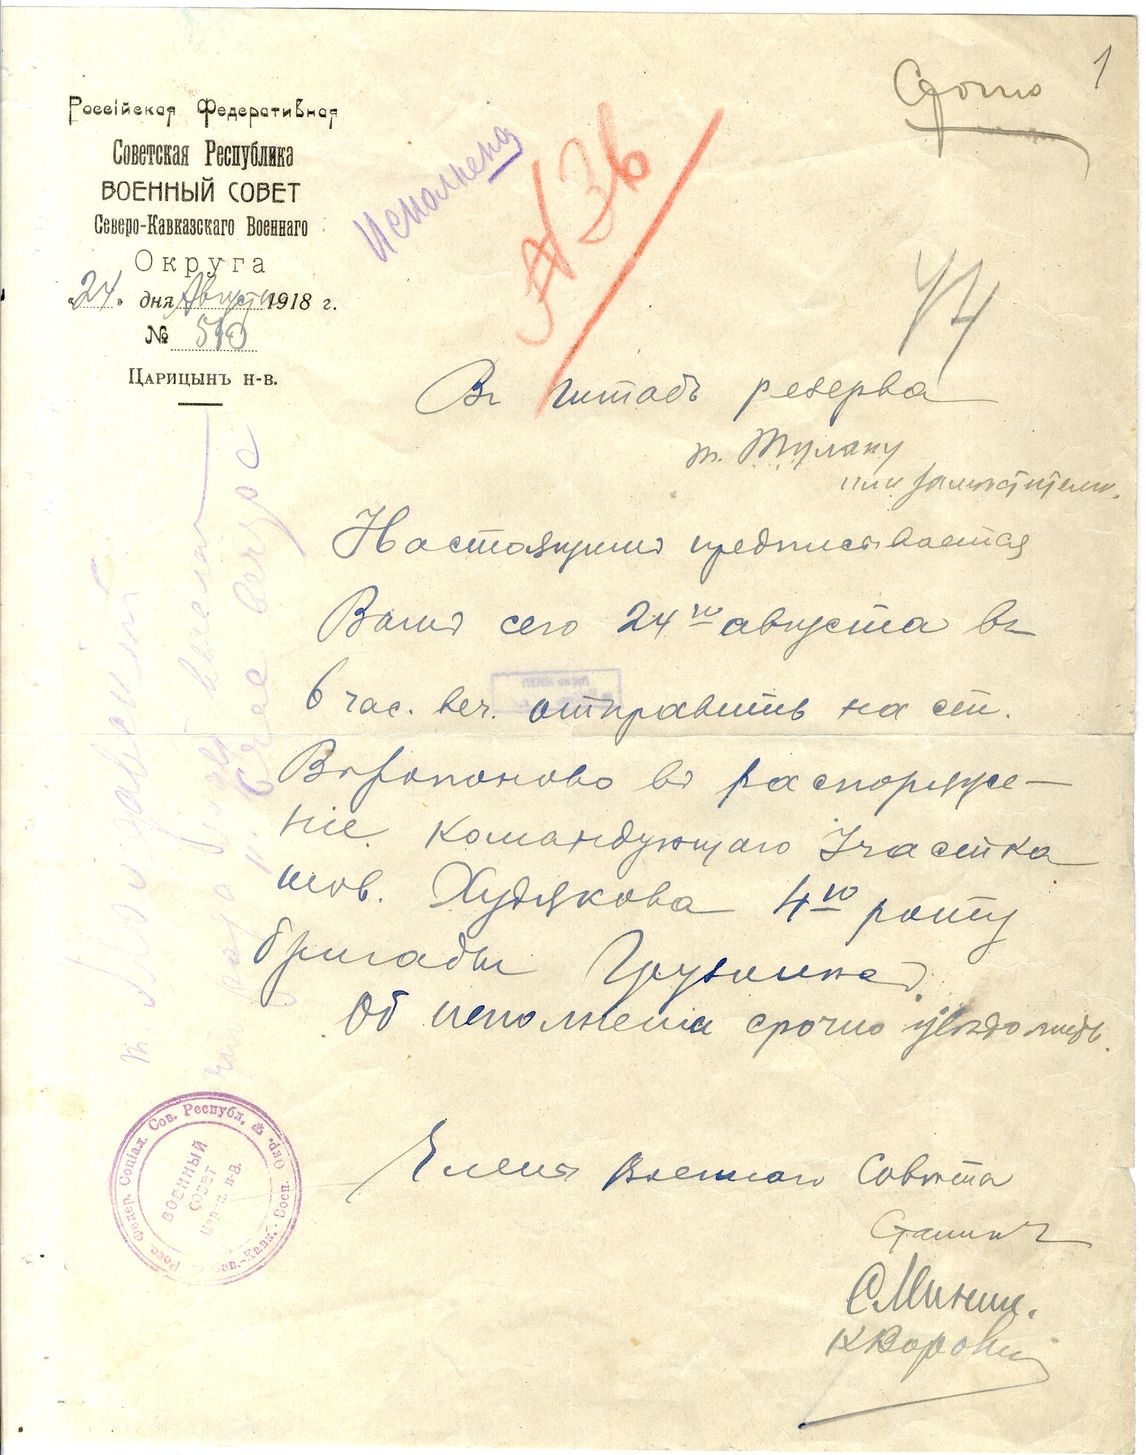 1
Срочно
Россiйская Федеративная
Советская Республика
ВОЕННЫЙ СОВЕТ
Северо-Кавказскаго Военнаго
Округа
"24" дня Августа 1918 г.
№
Царицынъ н-в.
Исполнено
№ 36
Въ штабъ резерва
т. Тулаку
или заместителю.
Настоящимъ предписывается
Вамъ сего 24го августа въ
6 час. веч. отправить на ст.
Воропоново въ распоряже-
нiе командующаго Участка
тов. Худякова 4ю роту
бригады Грузинка
Об исполненiи срочно уведомить.
Члены Военнаго Совѣта
Сталин
С Минин.
К Ворош
Росс. Федер. Соцiал. Сов. Республ.
ВОЕННЫЙ
СОВЕТ
Цариц. н-в.